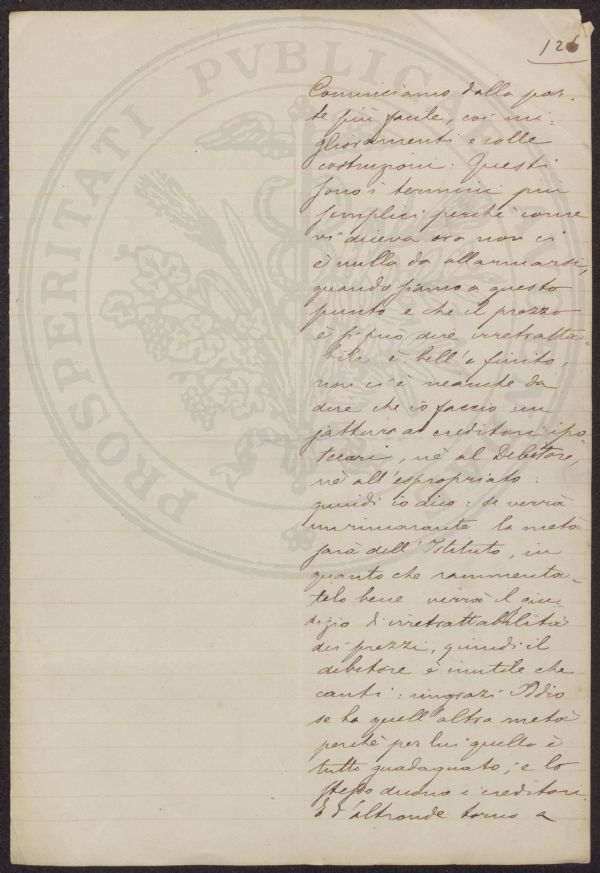 126
Cominciamo dalla par-
te più facile, coi mi=
glioramenti e colle
costruzioni. Questi
sono i termini più
semplici perchè come
vi diceva ora non ci
è nulla da allarmarsi,
quando siamo a questo
punto e che il prezzo
è si può dire irretratta
bile è bell'e finito,
non ci è neanche da
dire che io faccio un
jattura ai creditori ipo
tecari, nè al debitore,
nè all'espropriato:
quindi io dico: se verrà
un rimanente la metà
sarà dell'Istituto, in
quanto che rammenta-
telo bene verrà il giu-
dizio di irretrattabilità
dei prezzi, quindi il
debitore è inutile che
canti: ringrazi Iddio
se ha quell'altra metà
perchè per lui quello è
tutto guadagnato; e lo
stesso dicono i creditori
E d'altronde torno a
PROSPERITATI PVBLICAE